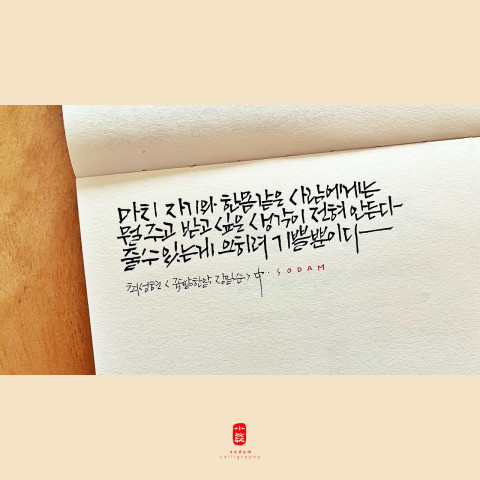 마치 자기와 한몸같은 사람에게는
뭘 주고 받고 싶은 생각이 전혀 안든다-
줄수 있는게 오히려 기쁠뿐이다—
최성현 <좁쌀한알, 장일순> 中 · SODAM
小談
sodam
calligraphy